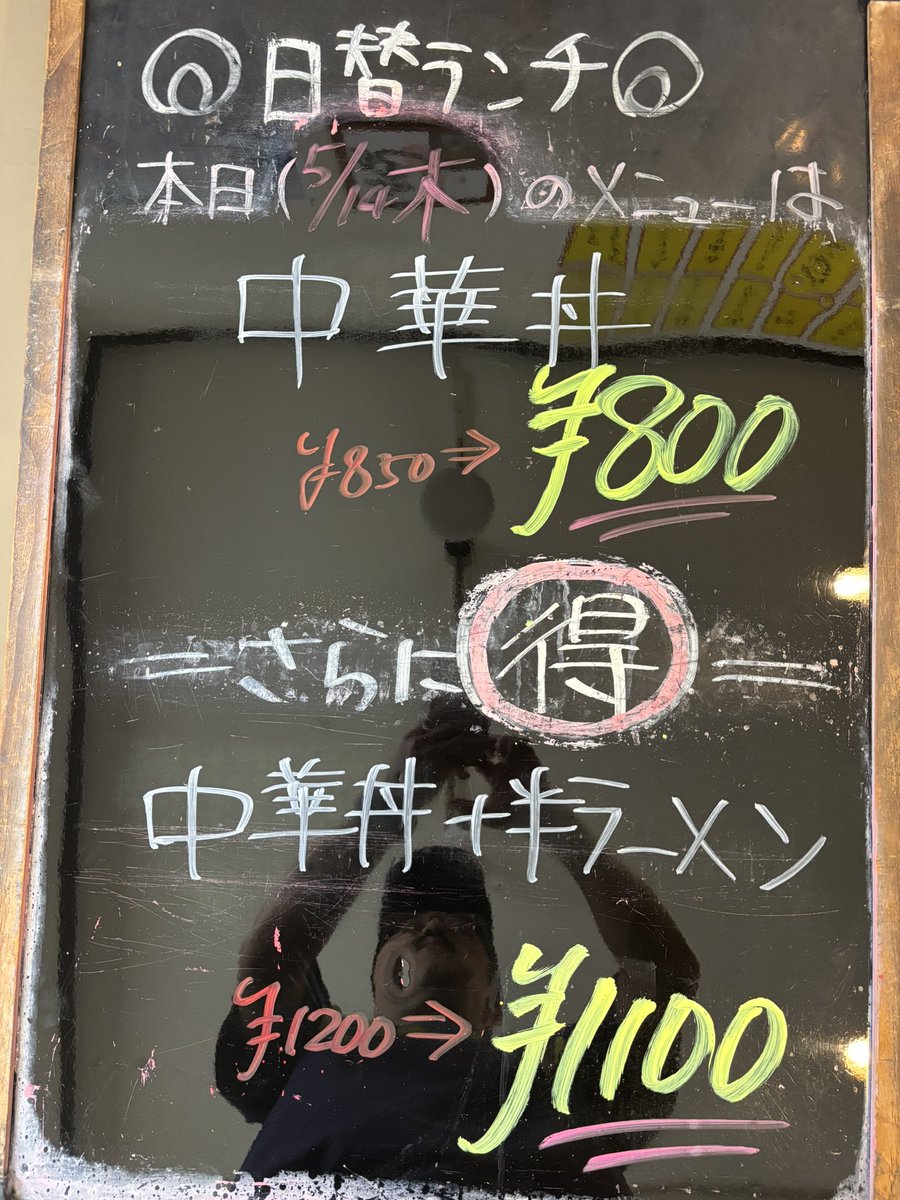 日替ランチ
本日(5/14木)のメニューは
中華丼
¥850⇒¥800
=さらに得=
中華丼+半ラーメン
¥1200⇒¥1100